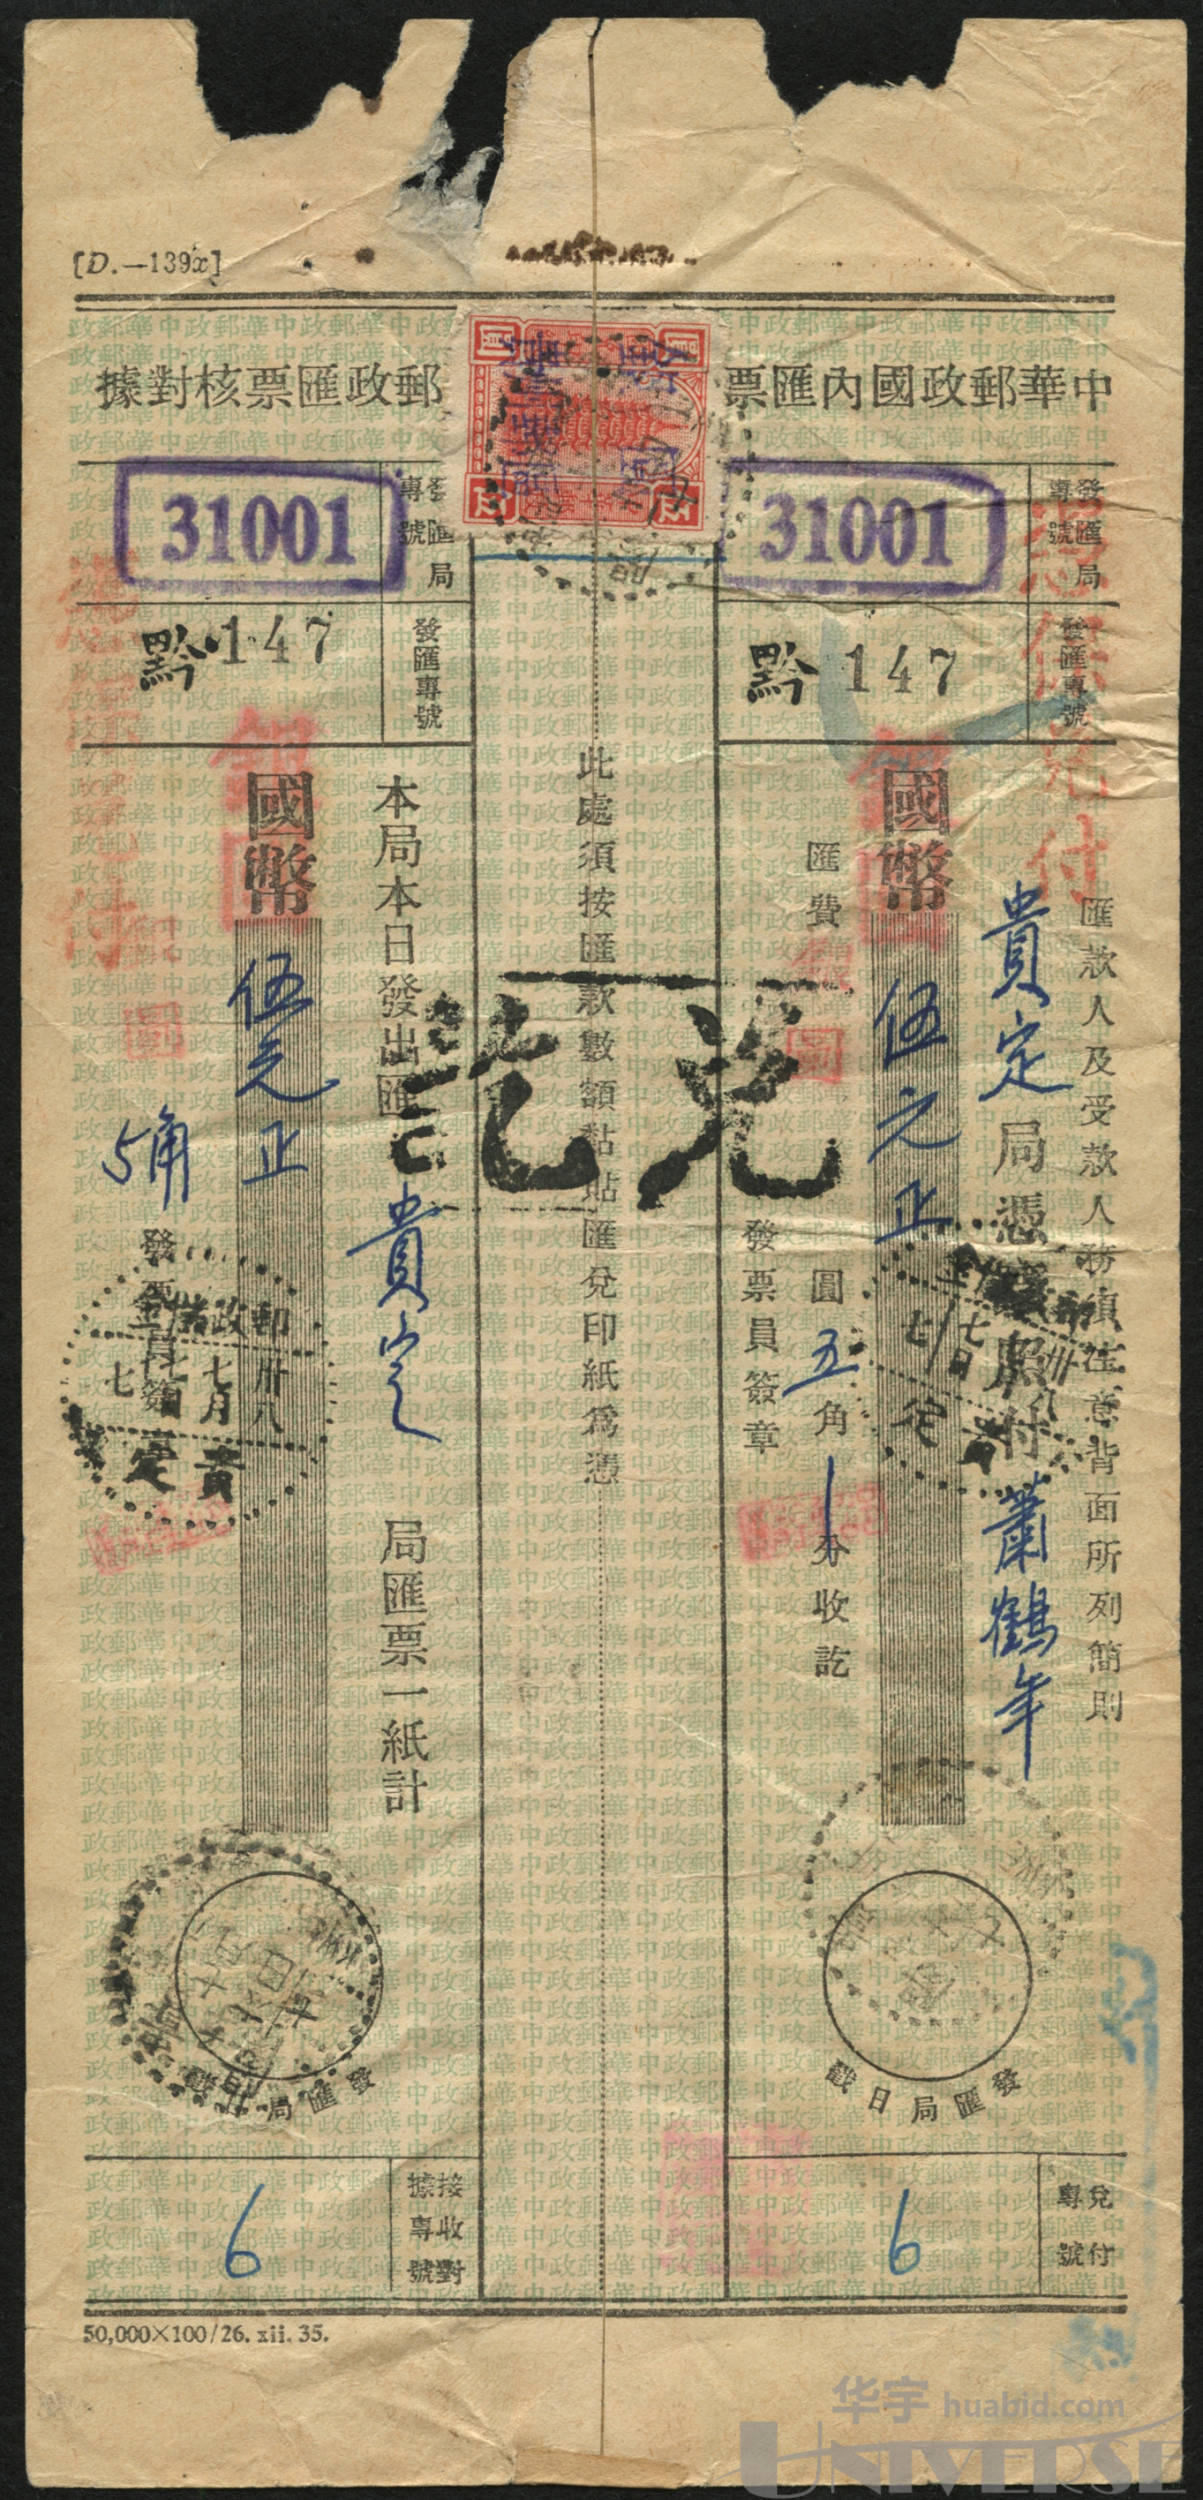 [D.—139x]
中華郵政國內匯票
郵政匯票核對據
發匯局專號
31001
發匯局專號
31001
發匯專號
黔 147
發匯專號
黔 147
憑保兌付
匯款人及受款人務須注意背面所列簡則
貴定 局憑票照付 蕭鶴年
國幣 伍元正
銀圓
匯費 圓五角一分收訖
銀圓
發票員簽章
兌訖
此處須按匯款數額黏貼匯兌印紙為憑
本局本日發出匯 貴定 局匯票一紙計
國幣 伍元正
銀圓
5角
發票員簽章
郵政儲金
卅八
七月
七
貴定
發匯局日戳
發匯局日戳
兌付專號
6
接收對據專號
6
50,000×100/26. xii. 35.
华宇 huabid.com
UNIVERSE